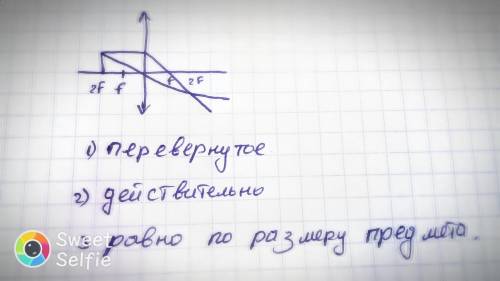 2F F F 2F
1) перевернутое
2) действительно
равно по размеру предмета.
Sweet
Selfie